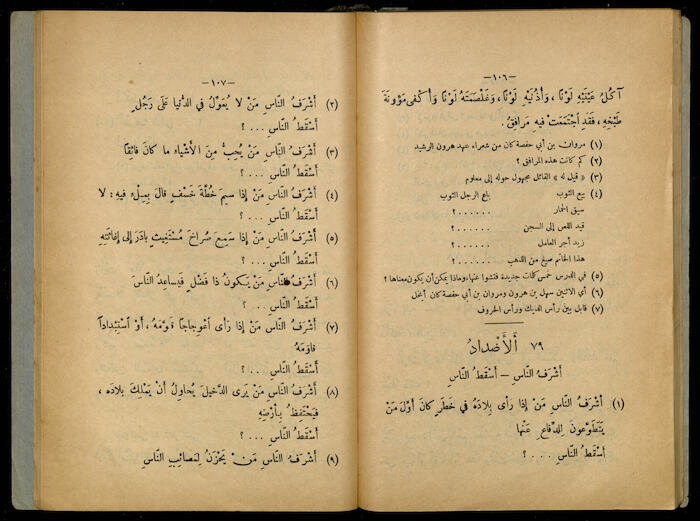 — ١٠٦ —
آكُلُ عَيْنَيْهِ لَوْنًا ، وَأُذُنَيْهِ لَوْنًا ، وَغَلْصَمَتَهُ لَوْنًا وَأُكْفَى مَؤُونَةَ
طَبْخِهِ ، فَقَدِ اجْتَمَعَتْ فِيهِ مَرَافِقُ .
(١) مروان بن أبي حفصة كان من شعراء عهد هرون الرشيد
(٢) كم كانت هذه المرافق ؟
(٣) « قيل له » القائل مجهول حوله إلى معلوم
(٤) بيع الثوب    باع الرجل الثوب
سيق الحمار    . . . . . . ؟
قيد اللص إلى السجن    . . . . . . ؟
زيد أجر العامل    . . . . . . ؟
هذا الخاتم صيغ من الذهب    . . . . . . ؟
(٥) في الدرس خمس كلمات جديدة فتشوا عنها ، وماذا يمكن أن يكون معناها ؟
(٦) أي الاثنين سهل بن هرون ومروان بن أبي حفصة كان أبخل
(٧) قابل بين رأس الديك ورأس الخروف
٧٩ أَلْأَضْدادُ
أَشْرَفُ النَّاسِ – أَسْقَطُ النَّاسِ
(١) أَشْرَفُ النَّاسِ مَنْ إِذا رَأَى بِلادَهُ في خَطَرٍ كانَ أَوَّلَ مَنْ
يَتَطَوَّعونَ لِلدِّفاعِ عَنْها
أَسْقَطُ النَّاسِ . . . . ؟
— ١٠٧ —
(٢) أَشْرَفُ النَّاسِ مَنْ لا يُعَوِّلُ في الدُّنْيا عَلَى رَجُلٍ
أَسْقَطُ النَّاسِ . . . ؟
(٣) أَشْرَفُ النَّاسِ مَنْ يُحِبُّ مِنَ الأَشْياءِ ما كانَ فائِقًا
أَسْقَطُ النَّاسِ . . . ؟
(٤) أَشْرَفُ النَّاسِ مَنْ إِذا سيمَ خُطَّةَ خَسْفٍ قالَ بِمِلْءِ فيهِ : لا
أَسْقَطُ النَّاسِ . . . ؟
(٥) أَشْرَفُ النَّاسِ مَنْ إِذا سَمِعَ صُراخَ مُسْتَغيثٍ بادَرَ إِلى إِغاثَتِهِ
أَسْقَطُ النَّاسِ . . . ؟
(٦) أَشْرَفُ النَّاسِ مَنْ يَكونُ ذا فَضْلٍ فَيُساعِدُ النَّاسَ
أَسْقَطُ النَّاسِ . . . ؟
(٧) أَشْرَفُ النَّاسِ مَنْ إِذا رَأَى اعْوِجاجًا قَوَّمَهُ ، أَوْ اسْتِبْدادًا
قاوَمَهُ
أَسْقَطُ النَّاسِ . . . ؟
(٨) أَشْرَفُ النَّاسِ مَنْ يَرى الدَّخيلَ يُحاوِلُ أَنْ يَمْلِكَ بِلادَهُ ،
فَيَحْتَفِظُ بِأَرْضِهِ
أَسْقَطُ النَّاسِ . . . ؟
(٩) أَشْرَفُ النَّاسِ مَنْ يَحْزَنُ لِمَصائِبِ النَّاسِ